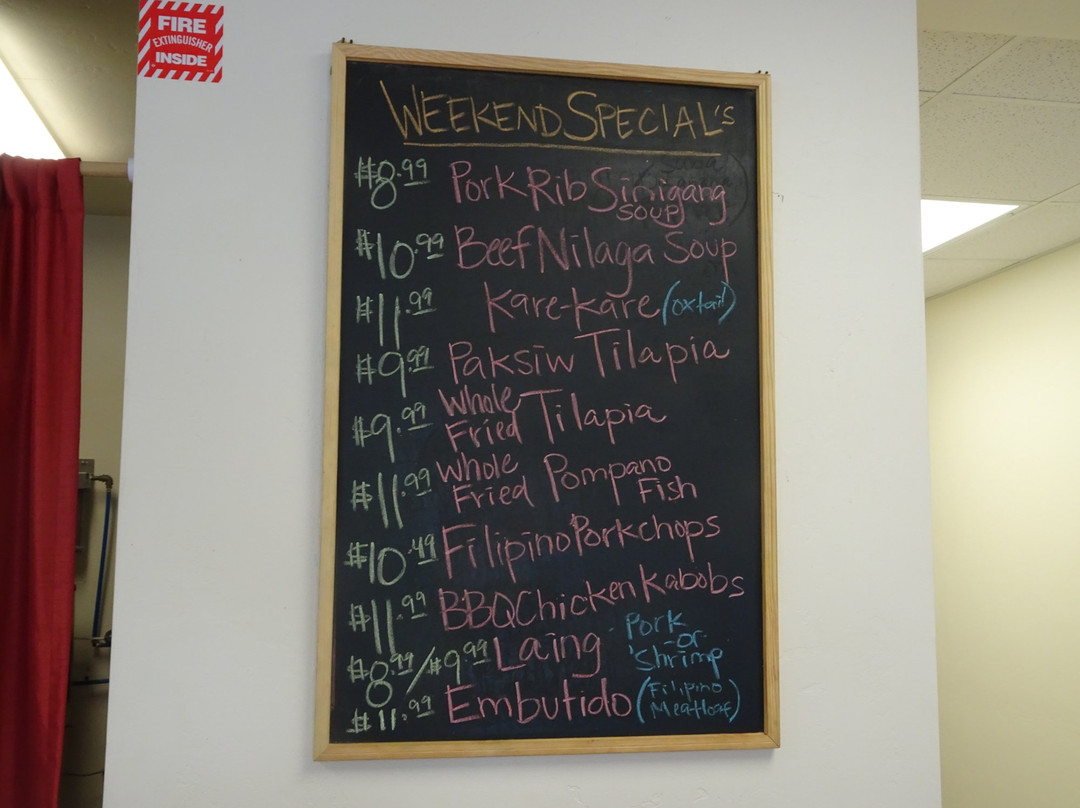 FIRE
EXTINGUISHER
INSIDE
WEEKEND SPECIAL'S
$8.99 Pork Rib Sinigang
soup
$10.99 Beef Nilaga Soup
$11.99 Kare-Kare (oxtail)
$9.99 Paksiw Tilapia
$9.99 Whole Fried Tilapia
$11.99 Whole Fried Pompano
Fish
$10.49 Filipino Porkchops
$11.99 BBQ Chicken Kabobs
$8.99/$9.99 Laing Pork
-or-
Shrimp
$11.99 Embutido (Filipino
Meatloaf)